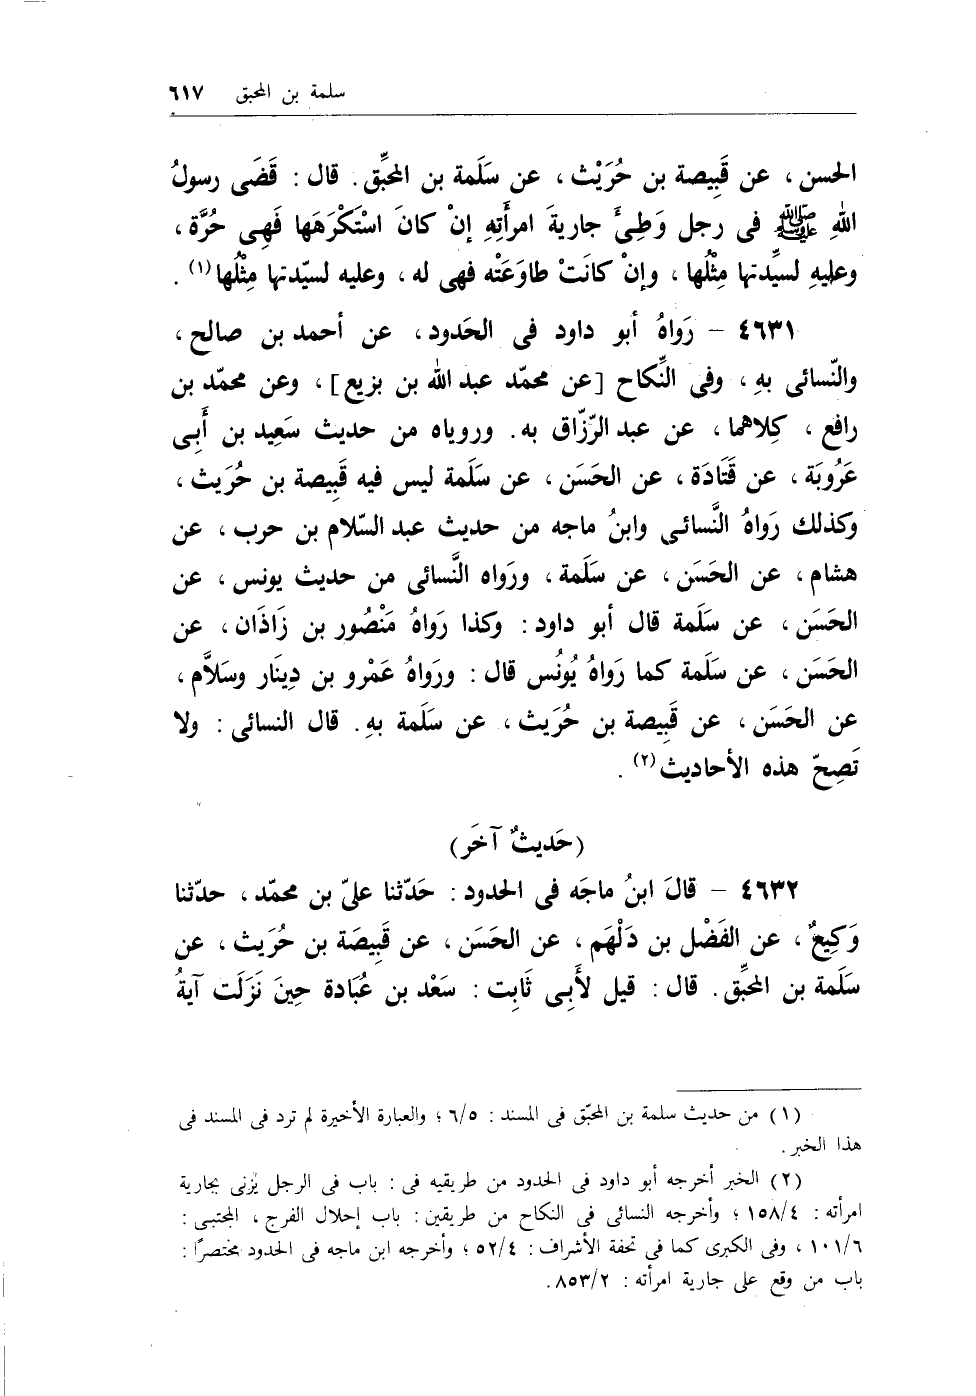 سلمة بن المحبق ٦١٧
الحسن ، عن قَبِيصة بن حُرَيْث ، عن سَلَمة بن المحبِّق. قال : قَضَى رسولُ
اللهِ ﷺ فى رجل وَطِئَ جاريةَ امرأَتِهِ إنْ كانَ اسْتَكْرَهَها فَهِى حُرَّة ،
وعليهِ لسيِّدتها مِثْلُها ، وإنْ كانَتْ طاوَعَتْه فهى له ، وعليه لسيّدتها مِثْلُها(١) .
٤٦٣١ – رَواهُ أبو داود فى الحَدود، عن أحمد بن صالح ،
والنّسائى بهِ ، وفى النِّكاح [عن محمّد عبد الله بن بزيع] ، وعن محمّد بن
رافع ، كِلاهما ، عن عبد الرّزّاق به. وروياه من حديث سَعِيد بن أَبِى
عَرُوبَة ، عن قَتَادَة ، عن الحَسَن ، عن سَلَمة ليس فيه قَبِيصة بن حُرَيث ،
وكذلك رَواهُ النَّسائى وابنُ ماجه من حديث عبد السّلام بن حرب ، عن
هشام ، عن الحَسَن ، عن سَلَمة ، ورَواه النَّسائى من حديث يونس ، عن
الحَسَن ، عن سَلَمة قال أبو داود : وكذا رَواهُ مَنْصُور بن زَاذَان ، عن
الحَسَن ، عن سَلَمة كما رَواهُ يُونُس قال : ورَواهُ عَمْرو بن دِينَار وسَلاَّم ،
عن الحَسَن ، عن قَبِيصة بن حُرَيث ، عن سَلَمة بهِ. قال النسائى : ولا
تَصِحّ هذه الأحاديث(٢) .
(حَديثٌ آخَر)
٤٦٣٢ – قالَ ابنُ ماجَه فى الحدود : حَدّثنا علىّ بن محمّد ، حدّثنا
وَكِيعٌ ، عن الفَضْل بن دَلْهَم ، عن الحَسَن ، عن قَبِيصَة بن حُرَيث ، عن
سَلَمة بن المحَبِّق. قال : قيل لأَبِى ثَابِت : سَعْد بن عُبَادة حِينَ نَزَلَت آيةُ
(١) من حديث سلمة بن المحبّق فى المسند : ٦/٥ ؛ والعبارة الأخيرة لم ترد فى المسند فى
هذا الخبر.
(٢) الخبر أخرجه أبو داود فى الحدود من طريقيه فى : باب فى الرجل يَزنى بجارية
امرأته : ١٥٨/٤ ؛ وأخرجه النسائى فى النكاح من طريقين : باب إحلال الفرج ، المجتبى :
١٠١/٦ ، وفى الكبرى كما فى تحفة الأشراف : ٥٢/٤ ؛ وأخرجه ابن ماجه فى الحدود مختصرًا :
باب من وقع على جارية امرأته : ٨٥٣/٢.